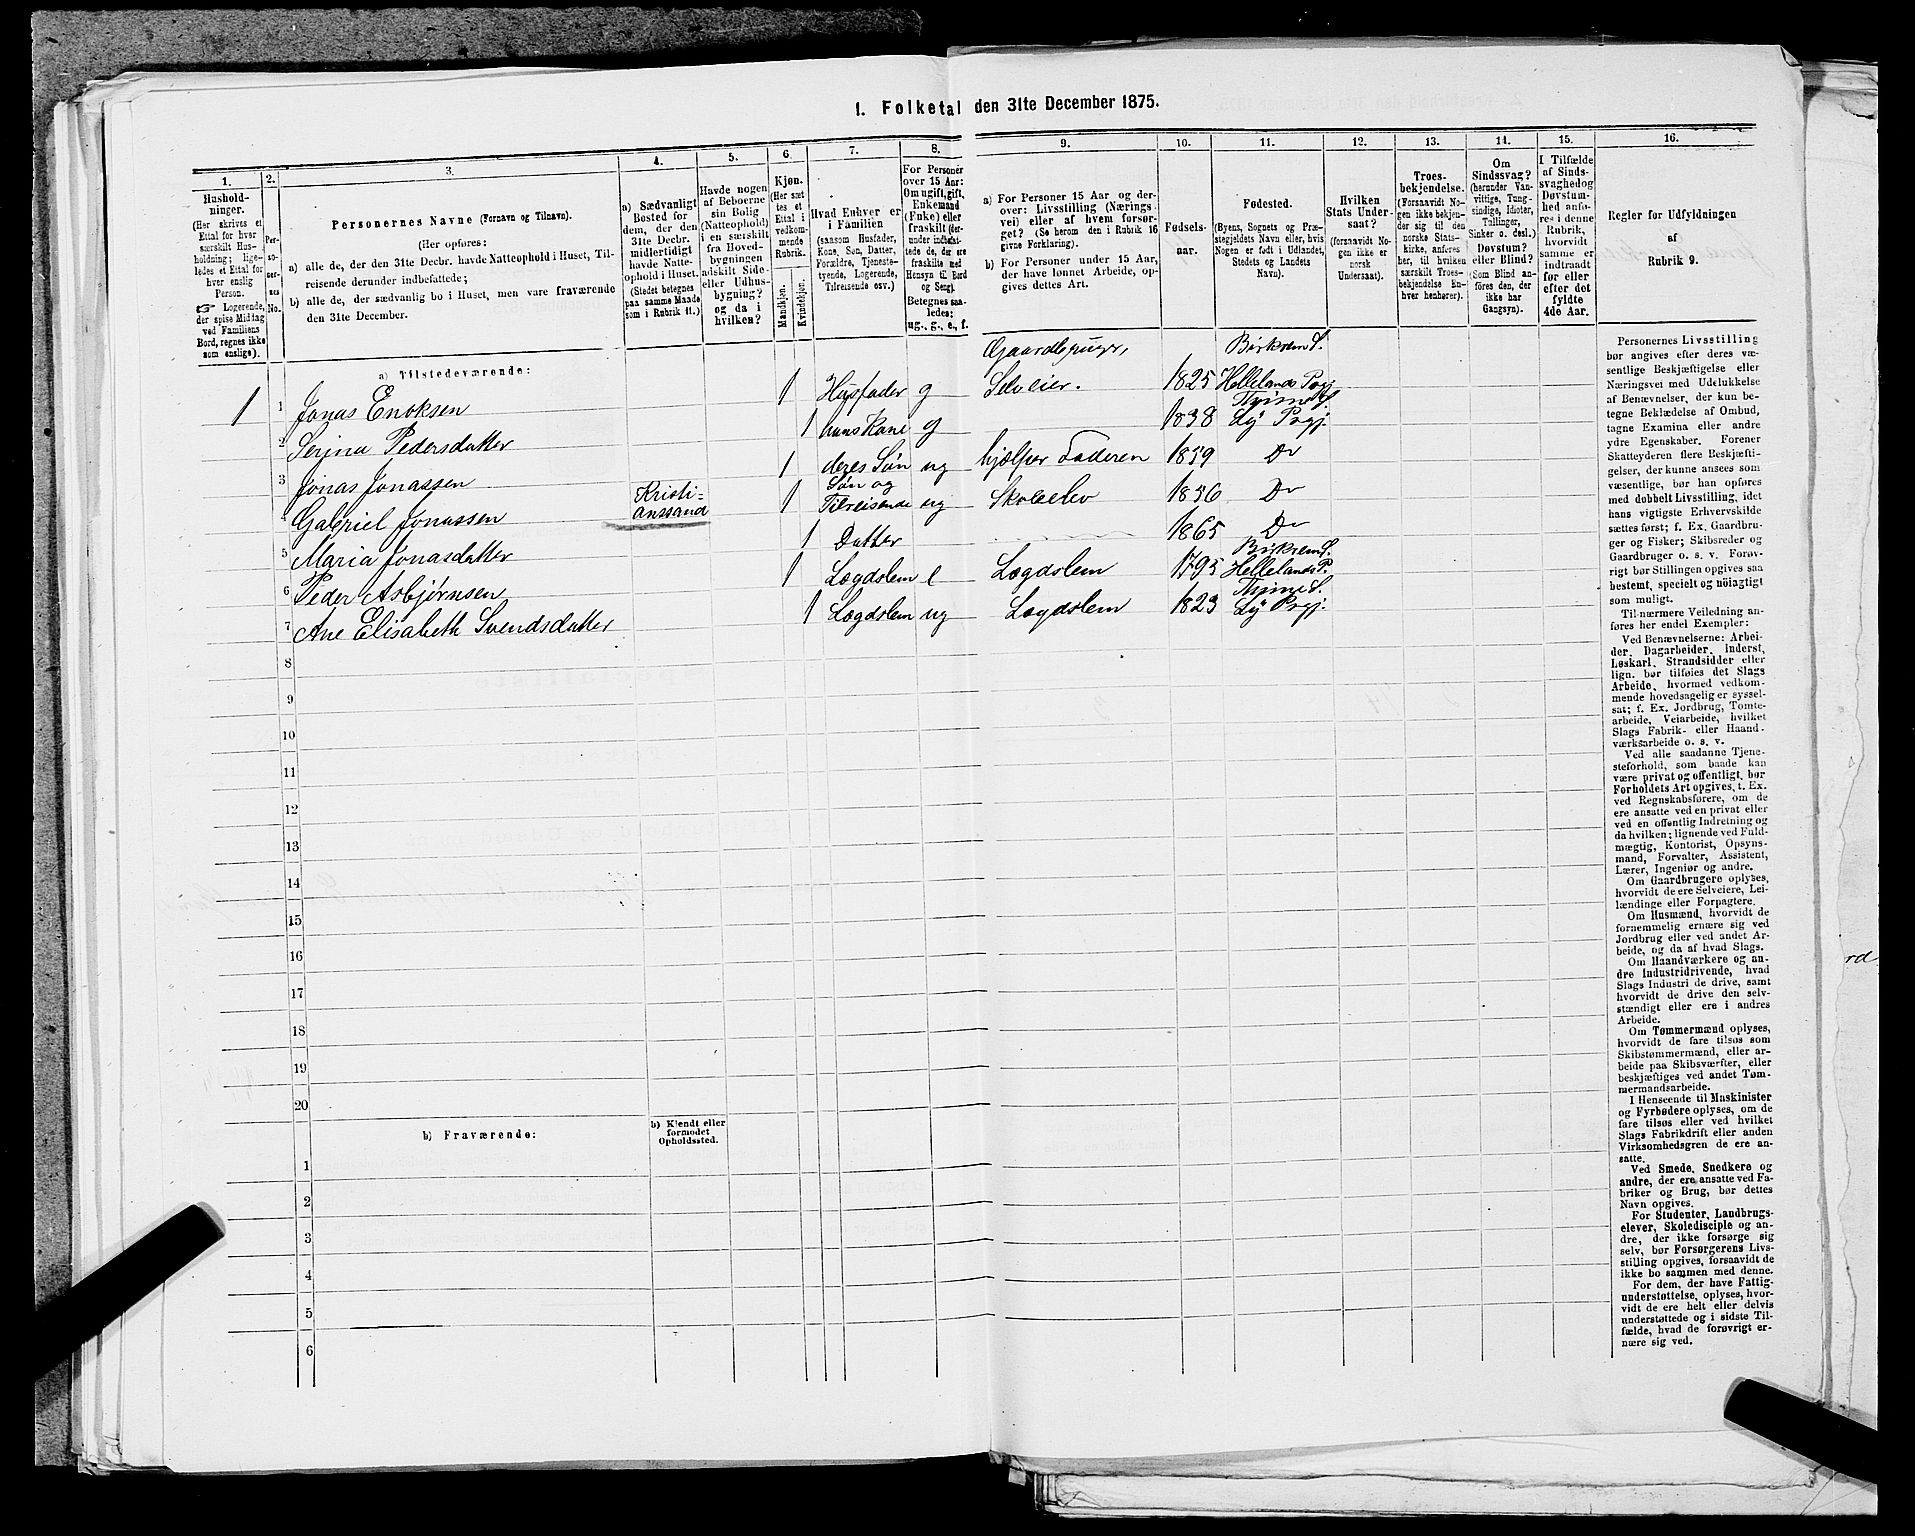 1. Folketal den 31te December 1875.
1.
2.
3.
4.
5.
6.
7.
8.
9.
10.
11.
12.
13.
14.
15.
16.
Husholdninger.
(Her skrives et
Ettal for hver
særskilt Husholdning;
ligeledes et Ettal for
hver enslig
Person.
☞ Logerende,
der spise Middag
ved Familiens
Bord, regnes ikke
som enslige).
Personernes No.
Personernes Navne (Fornavn og Tilnavn).
(Her opføres:
a) alle de, der den 31te Decbr. havde Natteophold i Huset, Tilreisende
derunder indbefattede;
b) alle de, der sædvanlig bo i Huset, men vare fraværende
den 31te December.
a) Sædvanligt
Bosted for
dem, der den
31te Decbr.
midlertidigt
havde Natteophold
i Huset.
(Stedet betegnes
paa samme Maade
som i Rubrik 11.)
Havde nogen
af Beboerne
sin Bolig
(Natteophold)
i en særskilt
fra Hovedbygningen
adskilt Side-
eller Udhusbygning?
og da i
hvilken?
Kjøn.
(Her sættes
et
Ettal i
vedkommende
Rubrik.
Mandkjøn.
Kvindekjøn.
Hvad Enhver er
i Familien
(saasom Husfader,
Kone, Søn, Datter,
Forældre, Tjenestetyende,
Logerende,
Tilreisende osv.)
For Personer
over 15 Aar:
Om ugift, gift,
Enkemand
(Enke) eller
fraskilt (derunder
indbefattede
de, der ere
fraskilte med
Hensyn til Bord
og Seng).
Betegnes saaledes:
ug., g., e., f.
a) For Personer 15 Aar og derover:
Livsstilling (Næringsvei)
eller af hvem forsørget?
(Se herom den i Rubrik 16
givne Forklaring).
b) For Personer under 15 Aar,
der have lønnet Arbeide, opgives
dettes Art.
Fødselsaar.
Fødested.
(Byens, Sognets og Præstegjeldets
Navn eller, hvis
Nogen er født i Udlandet,
Stedets og Landets
Navn).
Hvilken
Stats Undersaat?
(forsaavidt Nogen
ikke er
norsk
Undersaat).
Troesbekjendelse.
(Forsaavidt Nogen
ikke bekjender
sig til den
norske Statskirke,
anføres
her, til hvilken
særskilt Troesbekjendelse
Enhver
henhører).
Om
Sindssvag?
(herunder Vanvittige,
Tungsindige,
Idioter,
Tullinger,
Sinker o. desl.)
Døvstum?
eller Blind?
(Som Blind anføres
den, der
ikke har
Gangsyn).
I Tilfælde
af Sindssvaghed
og
Døvstumhed
anføres
i denne
Rubrik,
hvorvidt
samme er
indtraadt
før eller
efter det
fyldte
4de Aar.
Regler for Udfyldningen
af
Rubrik 9.
a) Tilstedeværende:
1 1 Jonas Enoksen 1 Husfader g Gaardbruger, Selveier. 1825 Birkrem S. Hellelands Pgj
2 Serina Pedersdatter 1 hans Kone g 1838 Thime S. Ly Pgj.
3 Jonas Jonassen 1 deres Søn ug hjælper Faderen 1859 Do
4 Gabriel Jonassen Kristianssand 1 Søn og Tilreisende ug Skoleelev 1856 Do
5 Maria Jonasdatter 1 Datter 1865 Do
6 Peder Asbjørnsen 1 Lægdslem e Lægdslem 1795 Birkrem S. Hellelands P.
7 Ane Elisabeth Svendsdatter 1 Lægdslem ug Lægdslem 1823 Thime S. Ly Pgj.
8
9
10
11
12
13
14
15
16
17
18
19
20
b) Fraværende:
b) Kjendt eller
formodet
Opholdssted.
1
2
3
4
5
6
Personernes Livsstilling
bør angives efter deres væsentlige
Beskjæftigelse eller
Næringsvei med Udelukkelse
af Benævnelser, der kun betegne
Beklædelse af Ombud,
tagne Examina eller andre
ydre Egenskaber. Forener
Skatteyderen flere Beskjæftigelser,
der kunne ansees som
væsentlige, bør han opføres
med dobbelt Livsstilling, idet
hans vigtigste Erhvervskilde
sættes først; f. Ex. Gaardbruger
og Fisker; Skibsreder og
Gaardbruger o. s. v. Forøvrigt
bør Stillingen opgives saa
bestemt, specielt og nöiagtigt
som muligt.
Til nærmere Veiledning anføres
her endel Exempler:
Ved Benævnelserne: Arbeider,
Dagarbeider, Inderst,
Løskarl, Strandsidder eller
lign. bør tilføies det Slags
Arbeide, hvormed vedkommende
hovedsagelig er sysselsat;
f. Ex. Jordbrug, Tomtearbeide,
Veiarbeide, hvilket
Slags Fabrik- eller Haandværksarbeide
o. s. v.
Ved alle saadanne Tjenesteforhold,
som baade kan
være privat og offentligt, bør
Forholdets Art opgives, t. Ex.
ved Regnskabsførere, om de
ere ansatte ved en privat eller
ved en offentlig Indretning og
da hvilken; lignende ved Fuldmægtig,
Kontorist, Opsynsmand,
Forvalter, Assistent,
Lærer, Ingeniør og andre.
Om Gaardbrugere oplyses,
hvorvidt de ere Selveiere, Leilændinge
eller Forpagtere.
Om Husmænd, hvorvidt de
fornemmelig ernære sig ved
Jordbrug eller ved andet Arbeide,
og da af hvad Slags.
Om Haandværkere og andre
Industridrivende, hvad
Slags Industri de drive, samt
hvorvidt de drive den selvstændigt
eller ere i andres
Arbeide.
Om Tømmermænd oplyses,
hvorvidt de fare tilsøs som
Skibstømmermænd, eller arbeide
paa Skibsværfter, eller
beskjæftiges ved andet Tømmermandsarbeide.
I Henseende til Maskinister
og Fyrbødere oplyses, om de
fare tilsøs eller ved hvilket
Slags Fabrikdrift eller anden
Virksomhedsgren de ere ansatte.
Ved Smede, Snedkere og
andre, der ere ansatte ved Fabriker
og Brug, bør dettes
Navn opgives.
For Studenter, Landbrugselever,
Skoledisciple og andre,
der ikke forsørge sig
selv, bør Forsørgerens Livsstilling
opgives, forsaavidt de
ikke bo sammen med denne.
For dem, der have Fattigunderstøttelse,
oplyses, hvorvidt
de ere helt eller delvis
understøttede og i sidste Tilfælde,
hvad de forøvrigt ernære
sig ved.